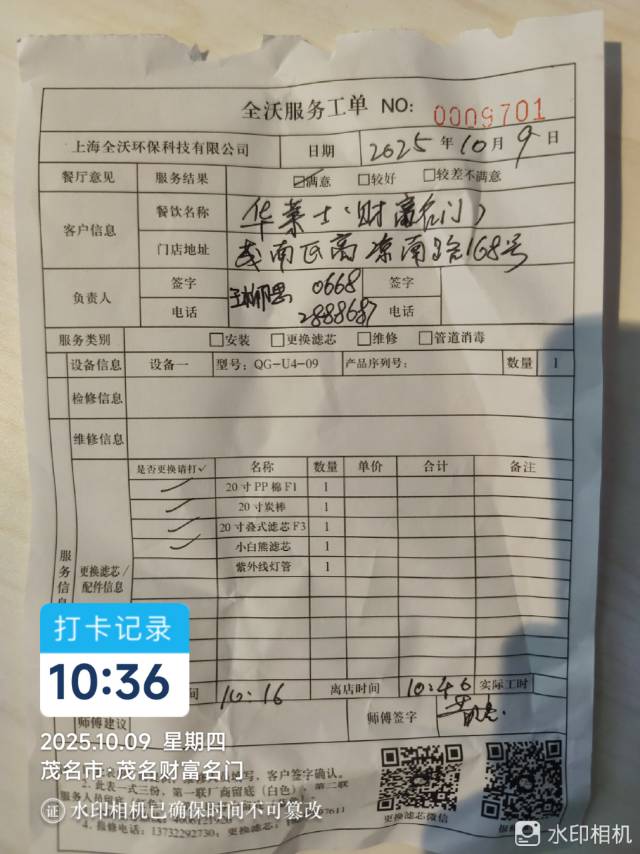 全沃服务工单 NO: 0009701
上海全沃环保科技有限公司 日期 2025年10月9日
餐厅意见 服务结果 ☑满意 □较好 □较差不满意
客户信息 餐饮名称 华莱士(财富名门)
门店地址 茂南区高凉南路168号
负责人 签字 0668 签字
电话 2888687 电话
服务类别 □安装 □更换滤芯 □维修 □管道消毒
设备信息 设备一 型号: QG-U4-09 产品序列号: 数量 1
检修信息
维修信息
服务信息 更换滤芯/配件信息 是否更换请打✓ 名称 数量 单价 合计 备注
✓ 20寸PP棉F1 1
✓ 20寸炭棒 1
✓ 20寸叠式滤芯F3 1
✓ 小白熊滤芯 1
紫外线灯管 1
打卡记录
10:36
间 10:16 离店时间 10:46 实际工时
师傅建议 师傅签字
2025.10.09 星期四
茂名市·茂名财富名门
写,客户签字确认。
2.此表一式三份,第一联厂商留底(白色),第二联
服务人员留
证 水印相机已确保时间不可篡改
4.报修电话:13732292730;更换滤芯
更换滤芯微信
水印相机